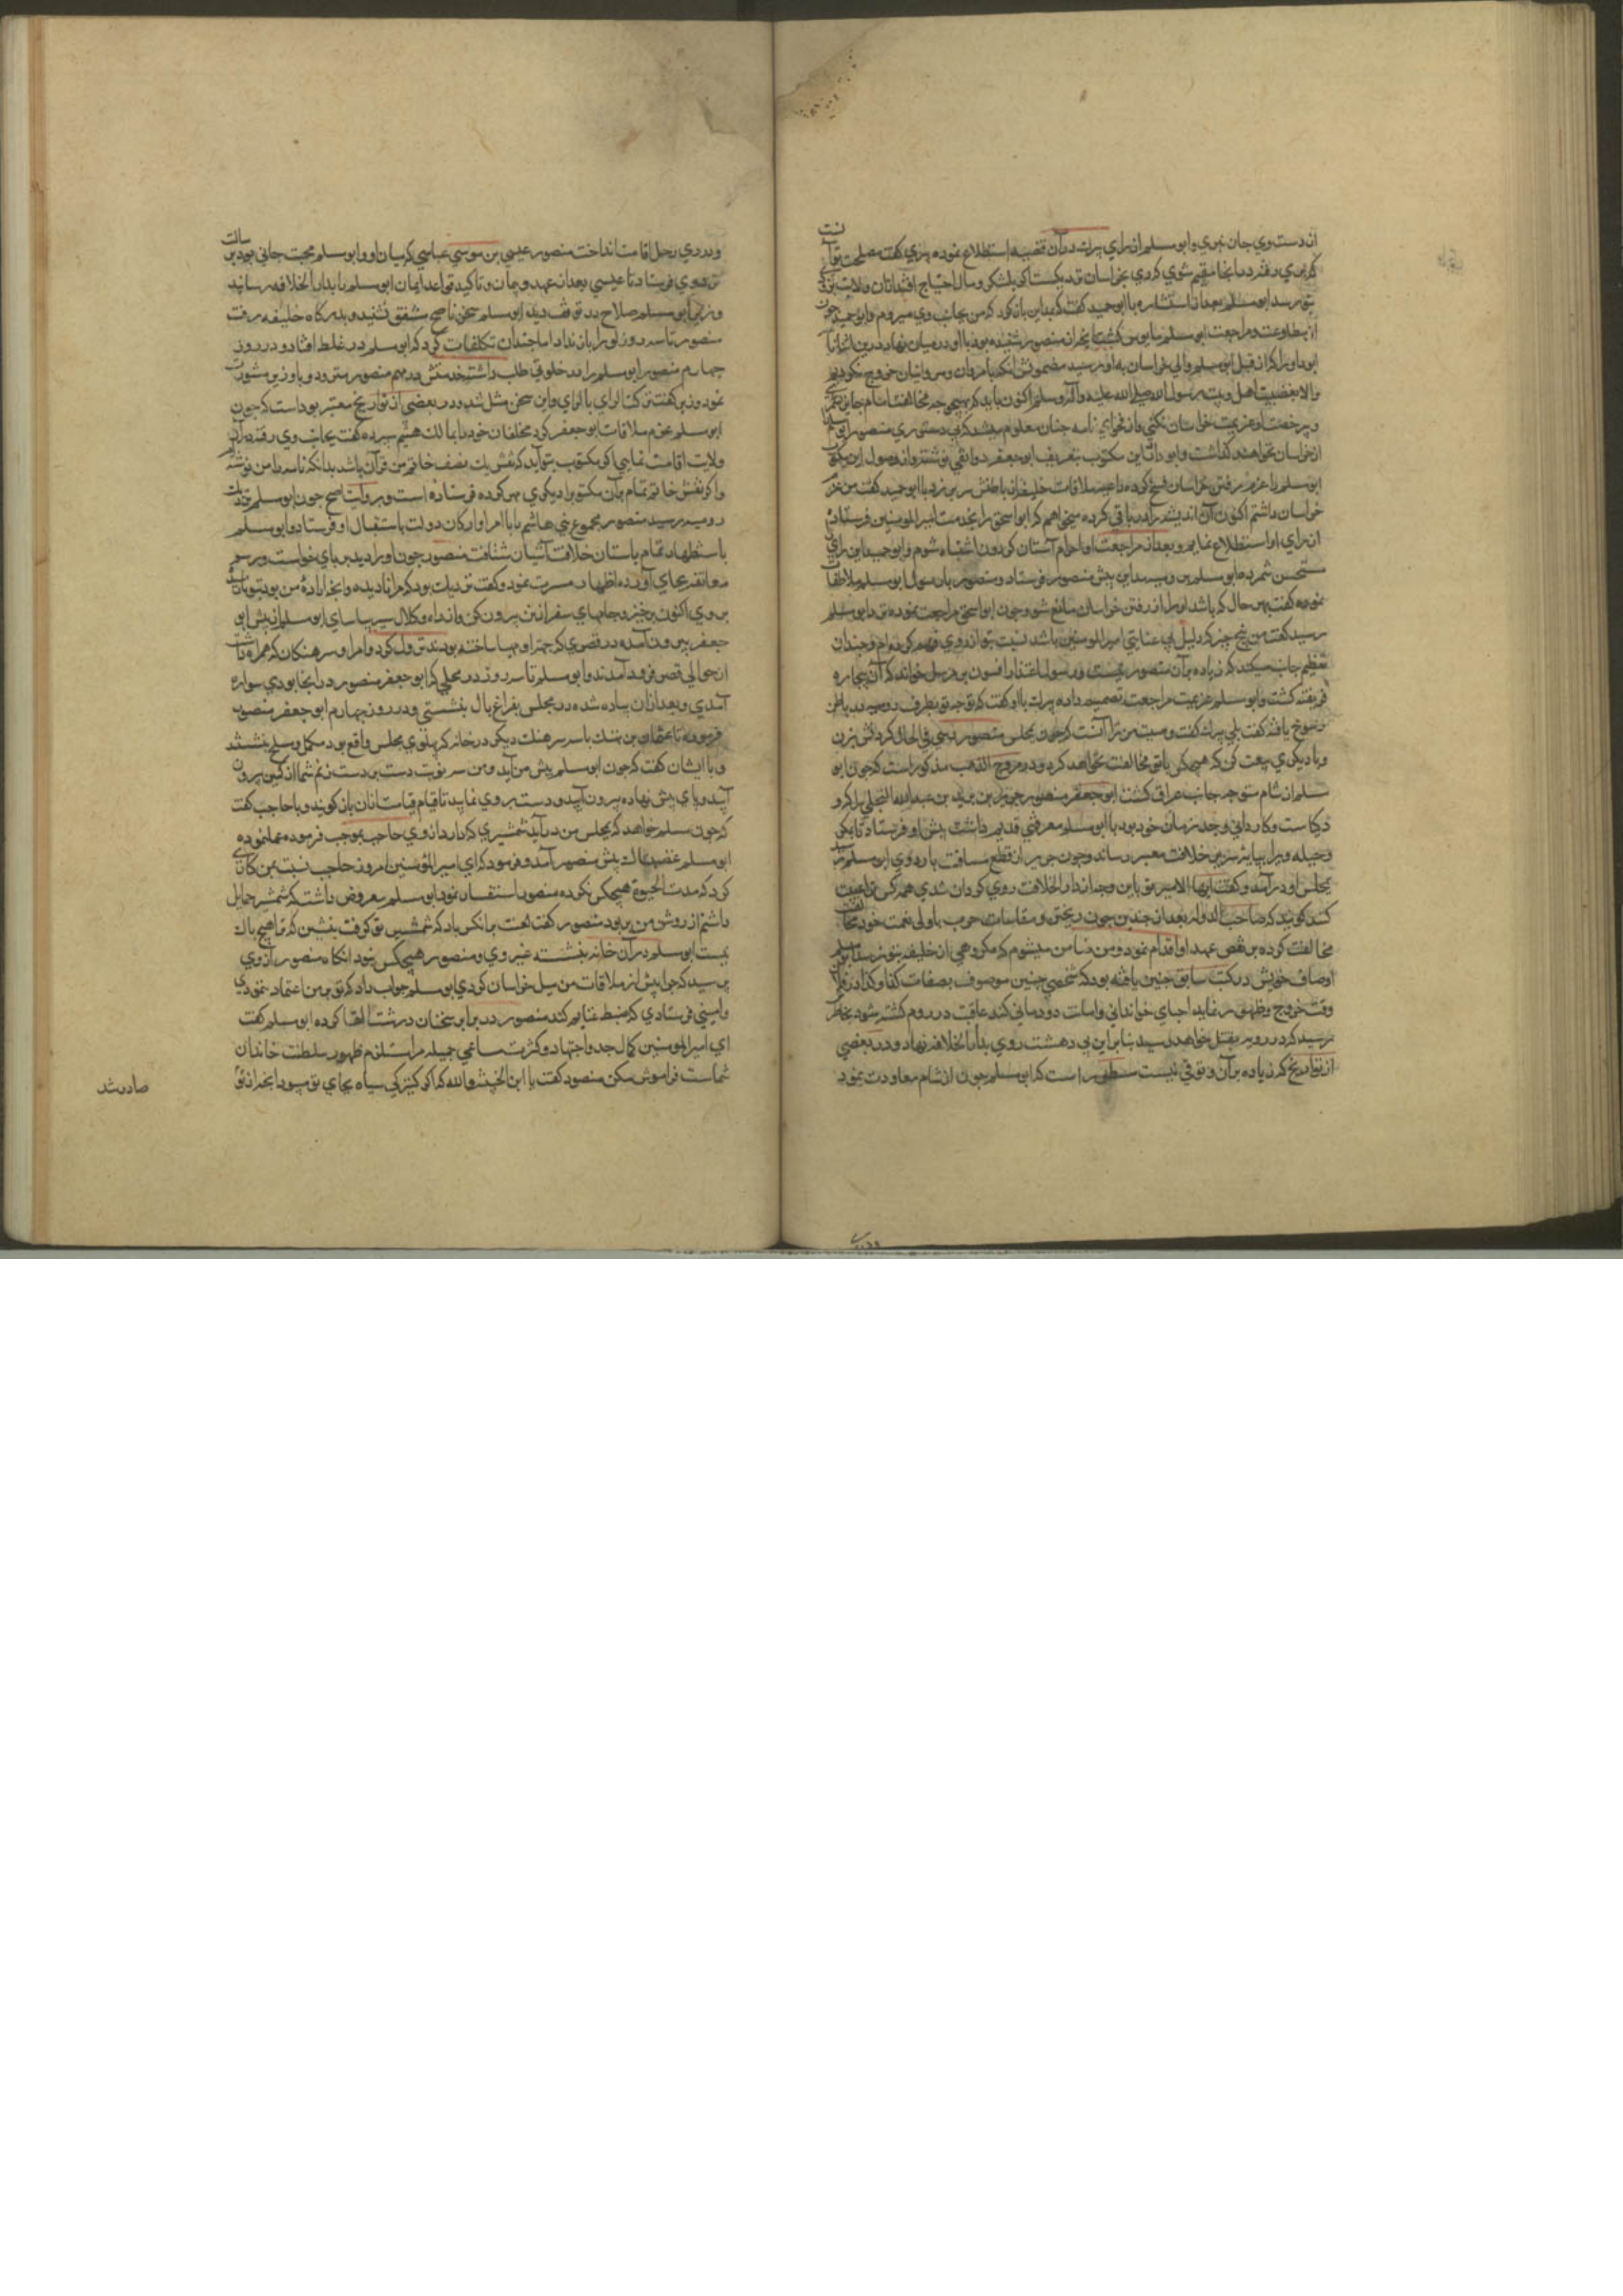 از دست وي جان نبري وابو مسلم از راي در آن قضيه استطلاع نموده كفت مصلحت
كه بري رفته در انجا مقيم شوي كه ري بخراسان نزديكست اكر بلشكر ومال احتياج افتد از ان ولايت
بتو رسد ابو مسلم بعد از استشاره با ابو حميد كفت كه من بجانب وي ميروم وابو حميد چون
از مطاوعت ومراجعت ابو مسلم مايوس كشت از منصور شنيده بود با او در ميان نهاد درين اثنا
ابو داود كه از قبل ابو مسلم والي خراسان بود رسيد مضمونش انكه ما بر مروانيان خروج نكرديم
والا بغضب اهل بيت رسول الله صلي الله عليه وآله وسلم اكنون بايد كه بهيچ وجه مخالفت امام جايز
وبي رخصت او عزيمت خراسان نكني واز فحواي نامه چنان معلوم ميشد كه بي دستوري منصور ابو مسلم
از خراسان نخواهد كذاشت وابو داود اين مكتوب بتعريف ابو جعفر دوانقي نوشته بود از وصول اين مكتوب
ابو مسلم با عزم رفتن خراسان فسخ كرده داعيه ملاقات خليفه از باطنش سر بر زد با ابو حميد كفت من عزم
خراسان داشتم اكنون آن انديشه را در باقي كرده ميخواهم كه ابو اسحق را بخدمت امير المومنين فرستادم
از راي او استطلاع نمايم وبعد از مراجعت او احرام آستان كردون اشتباه شوم وابو حميد اين راي
مستحسن شمرده ابو مسلم پيش منصور فرستاد ومنصور با رسول ابو مسلم ملاطفات
نموده كفت بهر حال كه باشد او را از رفتن خراسان مانع شو وچون ابو اسحق مراجعت نموده نزد ابو مسلم
رسيد كفت من هيچ چيز كه دليل بي عنايتي امير المومنين باشد نسبت بتو از وي فهم نكرده ام وچندان
تعظيم جانب ميكند كه زياده بر آن متصور نيست ورسول افسون بر خواند كه آن بيچاره
فريفته كشت وابو مسلم عزيمت مراجعت تصميم داده با او كفت كه توجه تو بطرف روميه در باطن
رسوخ يافته كفت بلي كفت وصيت من ترا آنست كه چون بمجلس منصور رسي في الحال كردنش بزن
وبا ديكري بيعت كن كه هيچكس با تو مخالفت نخواهد كرد ودر مروج الذهب مذكور است كه چون ابو
مسلم از شام متوجه جانب عراق كشت ابو جعفر منصور جرير بن يزيد بن عبد الله البجلي را كه
ذكاست وكارداني وحيد زمان خود بود با ابو مسلم معرفتي قديم داشت پيش او فرستاد تا
وحيله ويرا بپايه سرير خلافت مصير رساند وچون جرير از قطع مسافت باردوي ابو مسلم
بمجلس او در آمد وكفت ايها الامير تو باين وجه از دار الخلافه روي كردان شدي همه كس
كنند كويند كه صاحب الدوله بعد از چندين خون ريختن ومقاسات حرب با ولي نعمت خود
مخالفت كرده بر نقض عهد او اقدام نمود ومن ضامن ميشوم كه مكروهي از خليفه بتو نرسد ابو مسلم
اوصاف خويش در كتب سابق چنين يافته بود كه شخصي چنين موصوف بصفات كذا وكذا در فلان
وقت خروج وظهور نمايد احياي خانداني واماتت دودماني كند عاقبت در روم كشته شود بخاطر
نرسيد كه در روميه بقتل خواهد رسيد بنابراين بي دهشت روي بدار الخلافه نهاد ودر بعضي
از تواريخ كه زياده بر آن وثوقي نيست مسطور است كه ابو مسلم چون از شام معاودت نمود
ودر ري رحل اقامت انداخت منصور عيسي بن موسي عباسي كه ميان او وابو مسلم محبت جاني بود برسالت
نزد وي فرستاد تا عيسي بعد از عهد وپيمان وتاكيد قواعد ايمان ابو مسلم را بدار الخلافه رسانيد
ابو مسلم صلاح در توقف ديد ابو مسلم سخن ناصح مشفق نشنيد وبدركاه خليفه رفت
منصور تا سه روز او را بار نداد اما چندان تكلفات كرد كه ابو مسلم در غلط افتاد ودر روز
چهارم منصور ابو مسلم را در خلوتي طلب داشته در مهم منصور متردد وبا وزير مشورت
نمود وزير كفت تركت الراي بالري واين سخن مثل شد ودر بعضي از تواريخ معتبر بوداست كه چون
ابو مسلم بعزم ملاقات ابو جعفر كرد مخلفان خود را بمالك هيثم سپرده كفت بجانب وي رفته در آن
ولايت اقامت نمايي اكر مكتوب بتو آيد كه نقش يك نصف خاتم من بر آن باشد بدانكه نامه را من نوشته ام
واكر نقش خاتم تمام بر آن مكتوب ديكري مهر كرده فرستاده است وبروايت اصح چون ابو مسلم نزديك
روميه رسيد منصور مجموع بني هاشم را با امرا واركان دولت باستقبال او فرستاد وابو مسلم
باستظهار تمام باستان خلافت آشيان شتافت منصور چون او را ديد بر پاي خواست ورسم
معانقه بجاي آورده اظهار مسرت نمود وكفت نزديك بود كه مرا ناديده وانچه اراده من بود بتو نارسيده
بروي اكنون برخيز وجامهاي سفر از تن بيرون كن ابو مسلم از پيش ابو
جعفر بيرون آمده در قصري كه جهة او مهيا ساخته بودند نزول كرد وامرا وسرهنكان كه همراه داشت
از حوالي قصر فرود آمدند وابو مسلم تا سه روز در محلي كه ابو جعفر منصور در انجا بودي سواره
آمدي وبعد از ان پياده شده در مجلس بفراغ بال بنشستي ودر روز چهارم ابو جعفر منصور
فرموده تا عثمان بن نهيك با سه سرهنك ديكر در خانه كه پهلوي مجلس واقع بود مكمل ومسلح بنشستند
وبا ايشان كفت كه چون ابو مسلم پيش من آيد ومن سه نوبت دست بر دست زنم شما از كمين بيرون
آييد وپاي پيش نهاده بيرون آييد ودست بر وي نماييد وبا حاجب كفت
كه چون ابو مسلم خواهد كه بمجلس من در آيد شمشيري كه دارد از وي حاجب بموجب فرموده عمل نموده
ابو مسلم غضبناك پيش منصور آمد وفرمود كه اي امير المؤمنين امروز حاجب نسبت بمن كاري
كرد كه مدت الحيوة هيچكس نكرده منصور استفسار نمود ابو مسلم معروض داشت كه شمشير حمايل
داشتم از دوش من بربود منصور كفت لعنت برانكس باد كه شمشير تو كرفت بنشين كه ترا هيچ باك
نيست ابو مسلم در آن خانه بنشسته غير وي ومنصور هيچكس نبود انكاه منصور از وي
پرسيد كه چرا پيش از ملاقات من ميل خراسان كردي ابو مسلم جواب داد كه تو بر من اعتماد ننمودي
واميني فرستادي كه ضبط غنايم كند منصور در برابر سخنان درشت القا كرده ابو مسلم كفت
اي امير المومنين كمال جد واجتهاد وكثرت مساعي جميله مرا كه مستلزم ظهور سلطنت خاندان
شماست فراموش مكن منصور كفت يا ابن الخبيثه والله كه اكر كنيزكي سياه بجاي تو ميبود انچه از تو
صادر شد